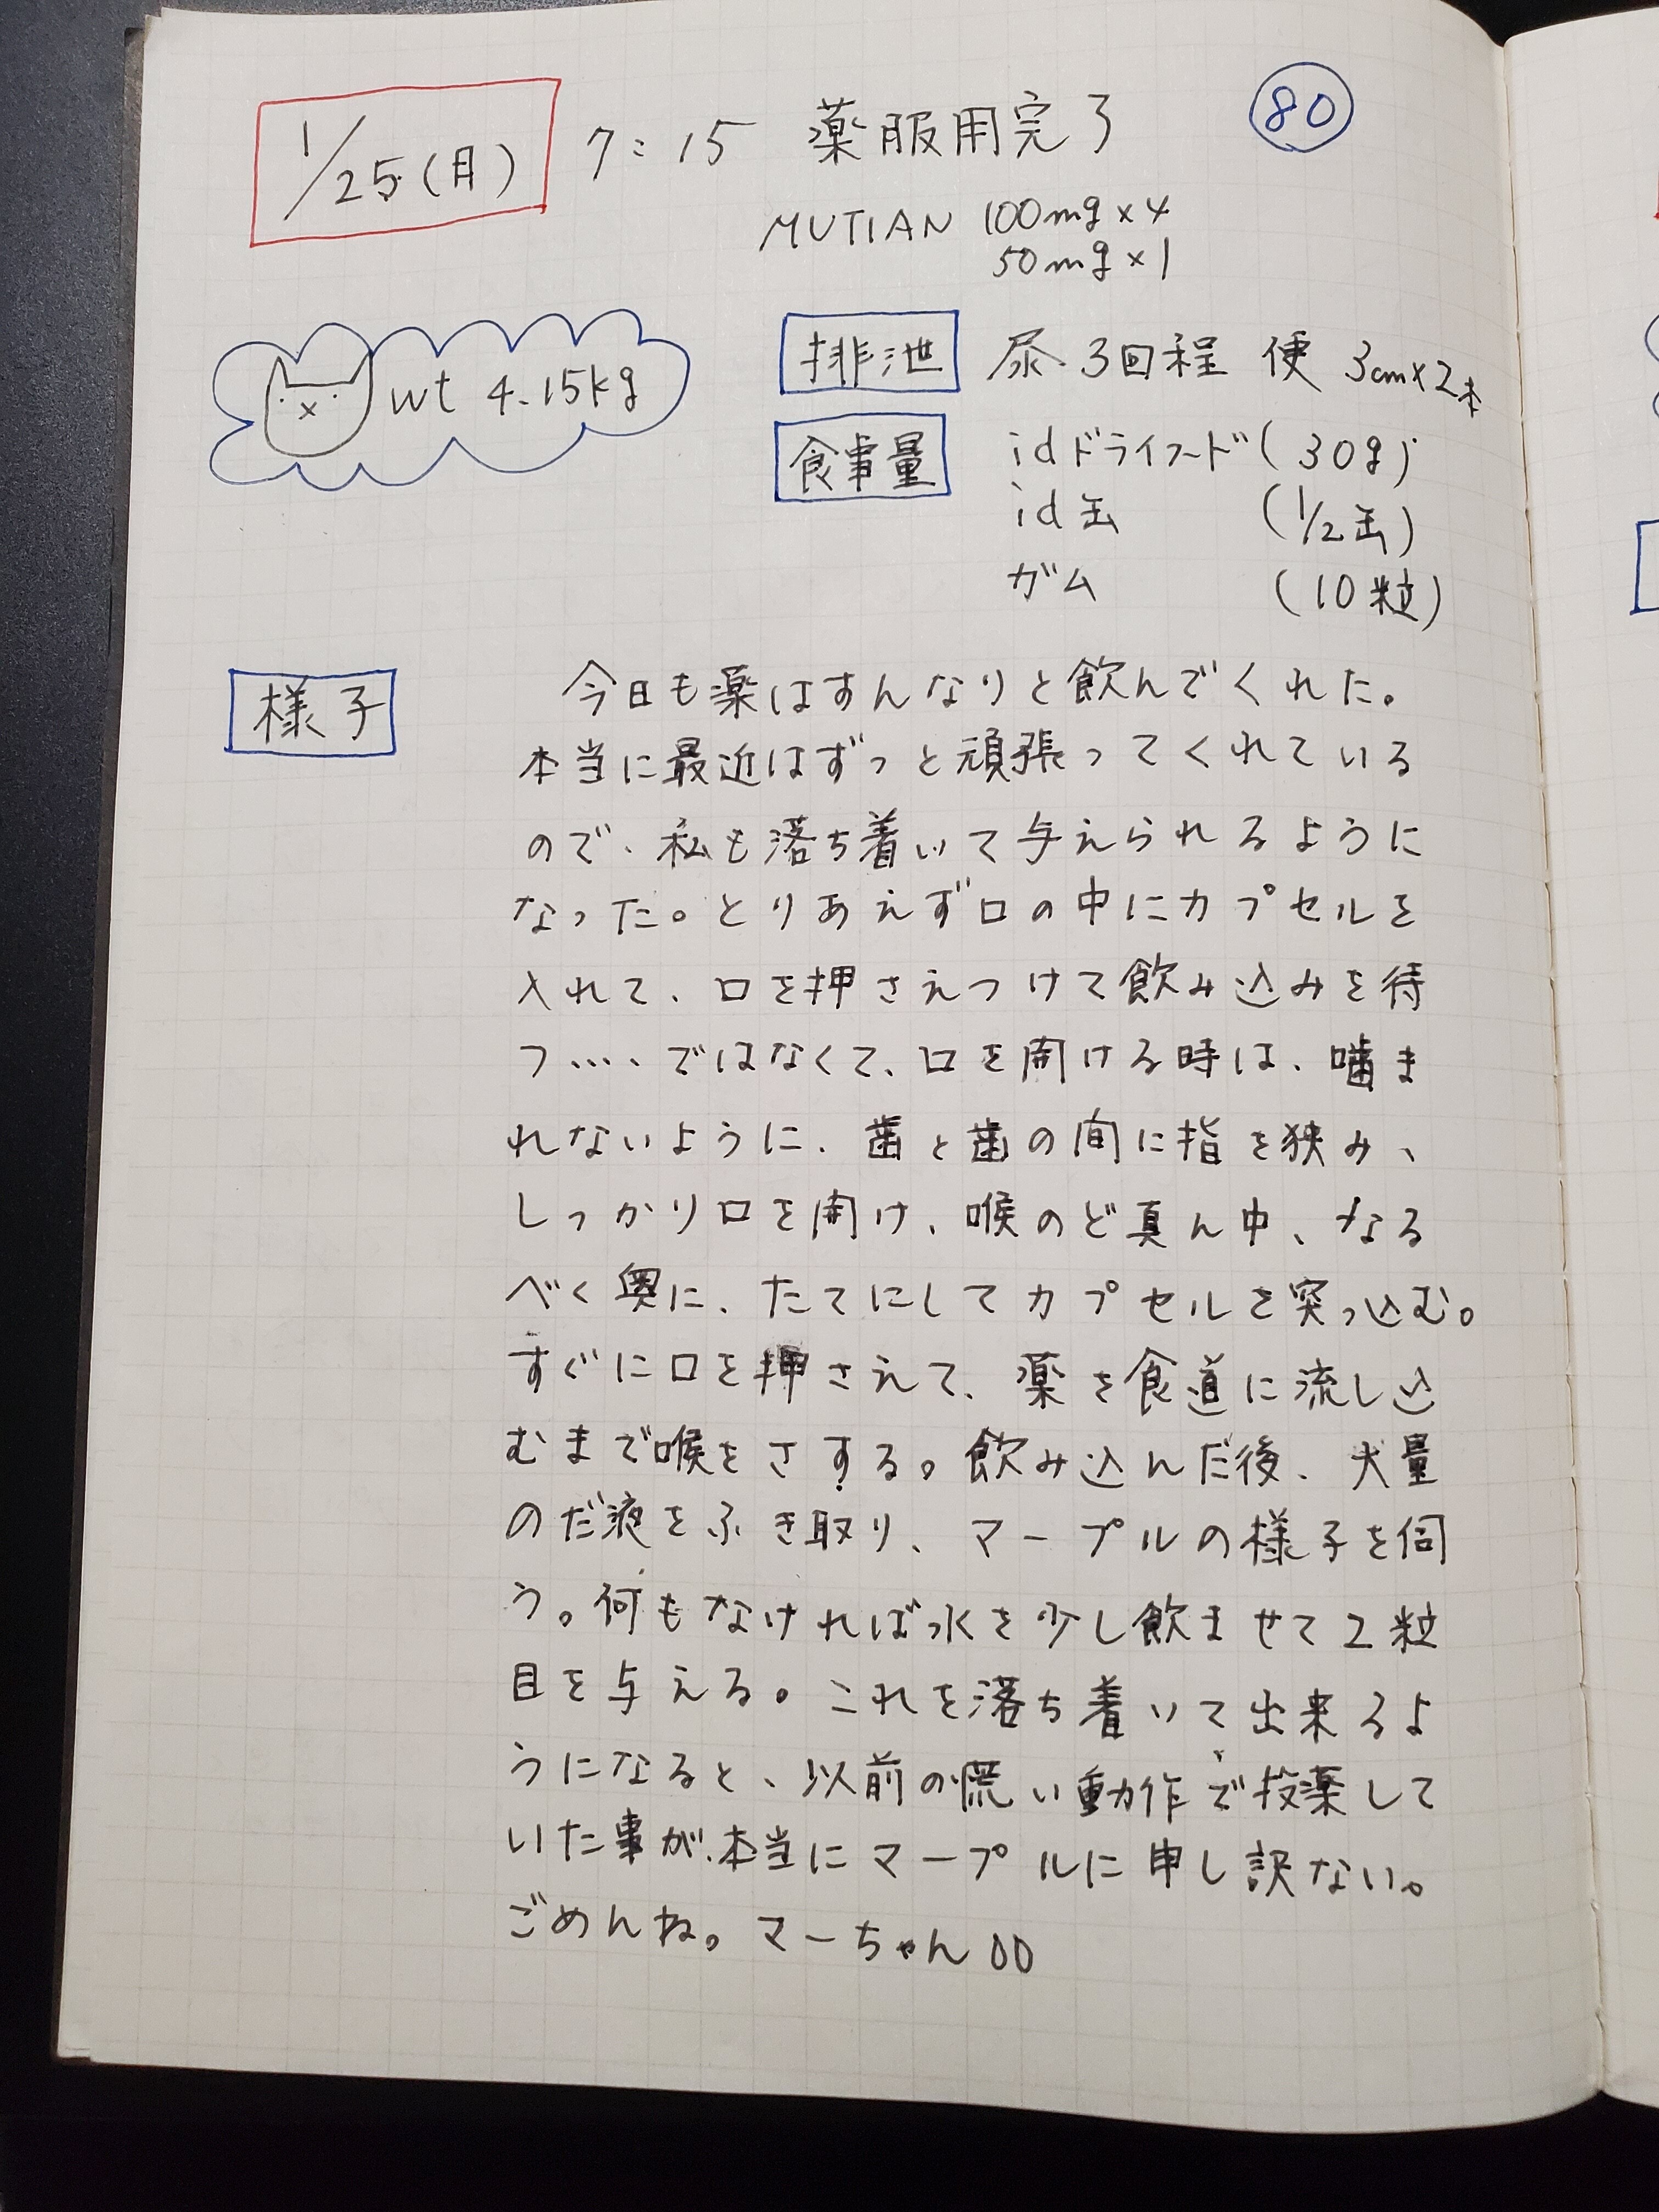 1/25(月) 7:15 薬服用完了 80
MUTIAN 100mg×4
50mg×1
wt 4.15kg
排泄 尿.3回程 便 3cm×2本
食事量 idドライフード(30g)
id缶 (1/2缶)
ガム (10粒)
様子 今日も薬はすんなりと飲んでくれた。
本当に最近はずっと頑張ってくれている
ので、私も落ち着いて与えられるように
なった。とりあえず口の中にカプセルを
入れて、口を押さえつけて飲み込みを待
つ…ではなくて、口を開ける時は、噛ま
れないように、歯と歯の間に指を狭み、
しっかり口を開け、喉のど真ん中、なる
べく奥に、たてにしてカプセルを突っ込む。
すぐに口を押さえて、薬を食道に流し込
むまで喉をさする。飲み込んだ後、大量
のだ液をふき取り、マープルの様子を伺
う。何もなければ水を少し飲ませて2粒
目を与える。これを落ち着いて出来るよ
うになると、以前の慌い動作で投薬して
いた事が、本当にマープルに申し訳ない。
ごめんね。マーちゃん